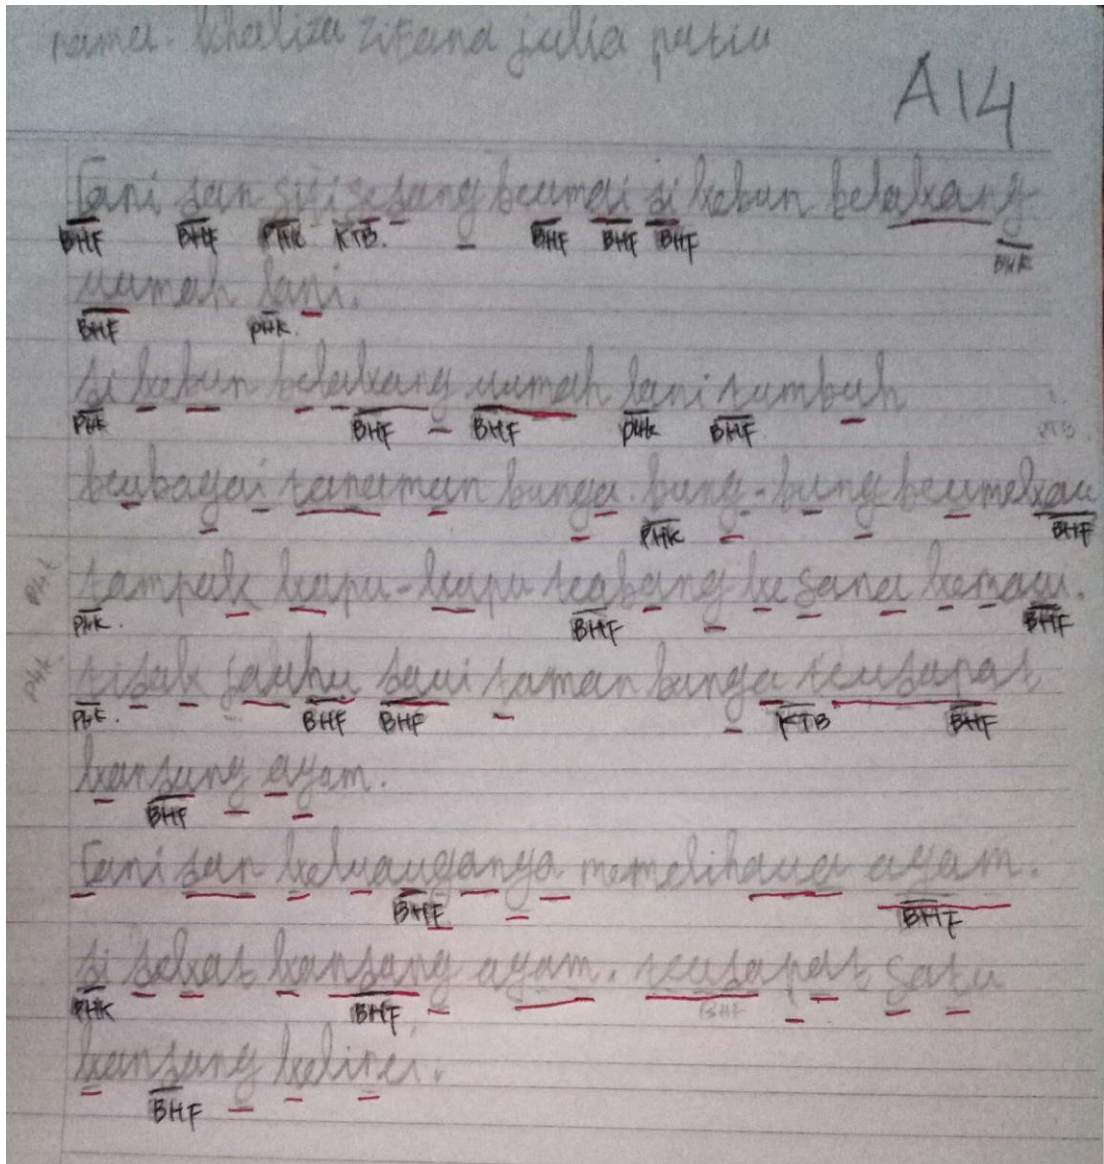 nama. khaliza zifana julia putiu
A14
Tani san siti sesang beumai si kebun belakang
BHF BHF PHK KTB. BHF BHF BHF BHK
uumah tani.
BHF PHK.
si kebun belakang uumah tani tumbuh
PHK BHF BHF PHK BHF
KTB.
beubagai tanaman bunga. bung-bung beumekau
PHK BHF
PHK
tampak kapu-kapu teabang ke sana kemaui.
PHK. BHF BHF
PHK.
tisak jauhu saui taman bunga teusapat
PHK. BHF BHF KTB BHF
kansang ayam.
BHF
Tani san keluauganya memelihaua ayam.
BHF BHF
si sekat kansang ayam. teusapat satu
PHK BHF BHF
kansang kelinci.
BHF